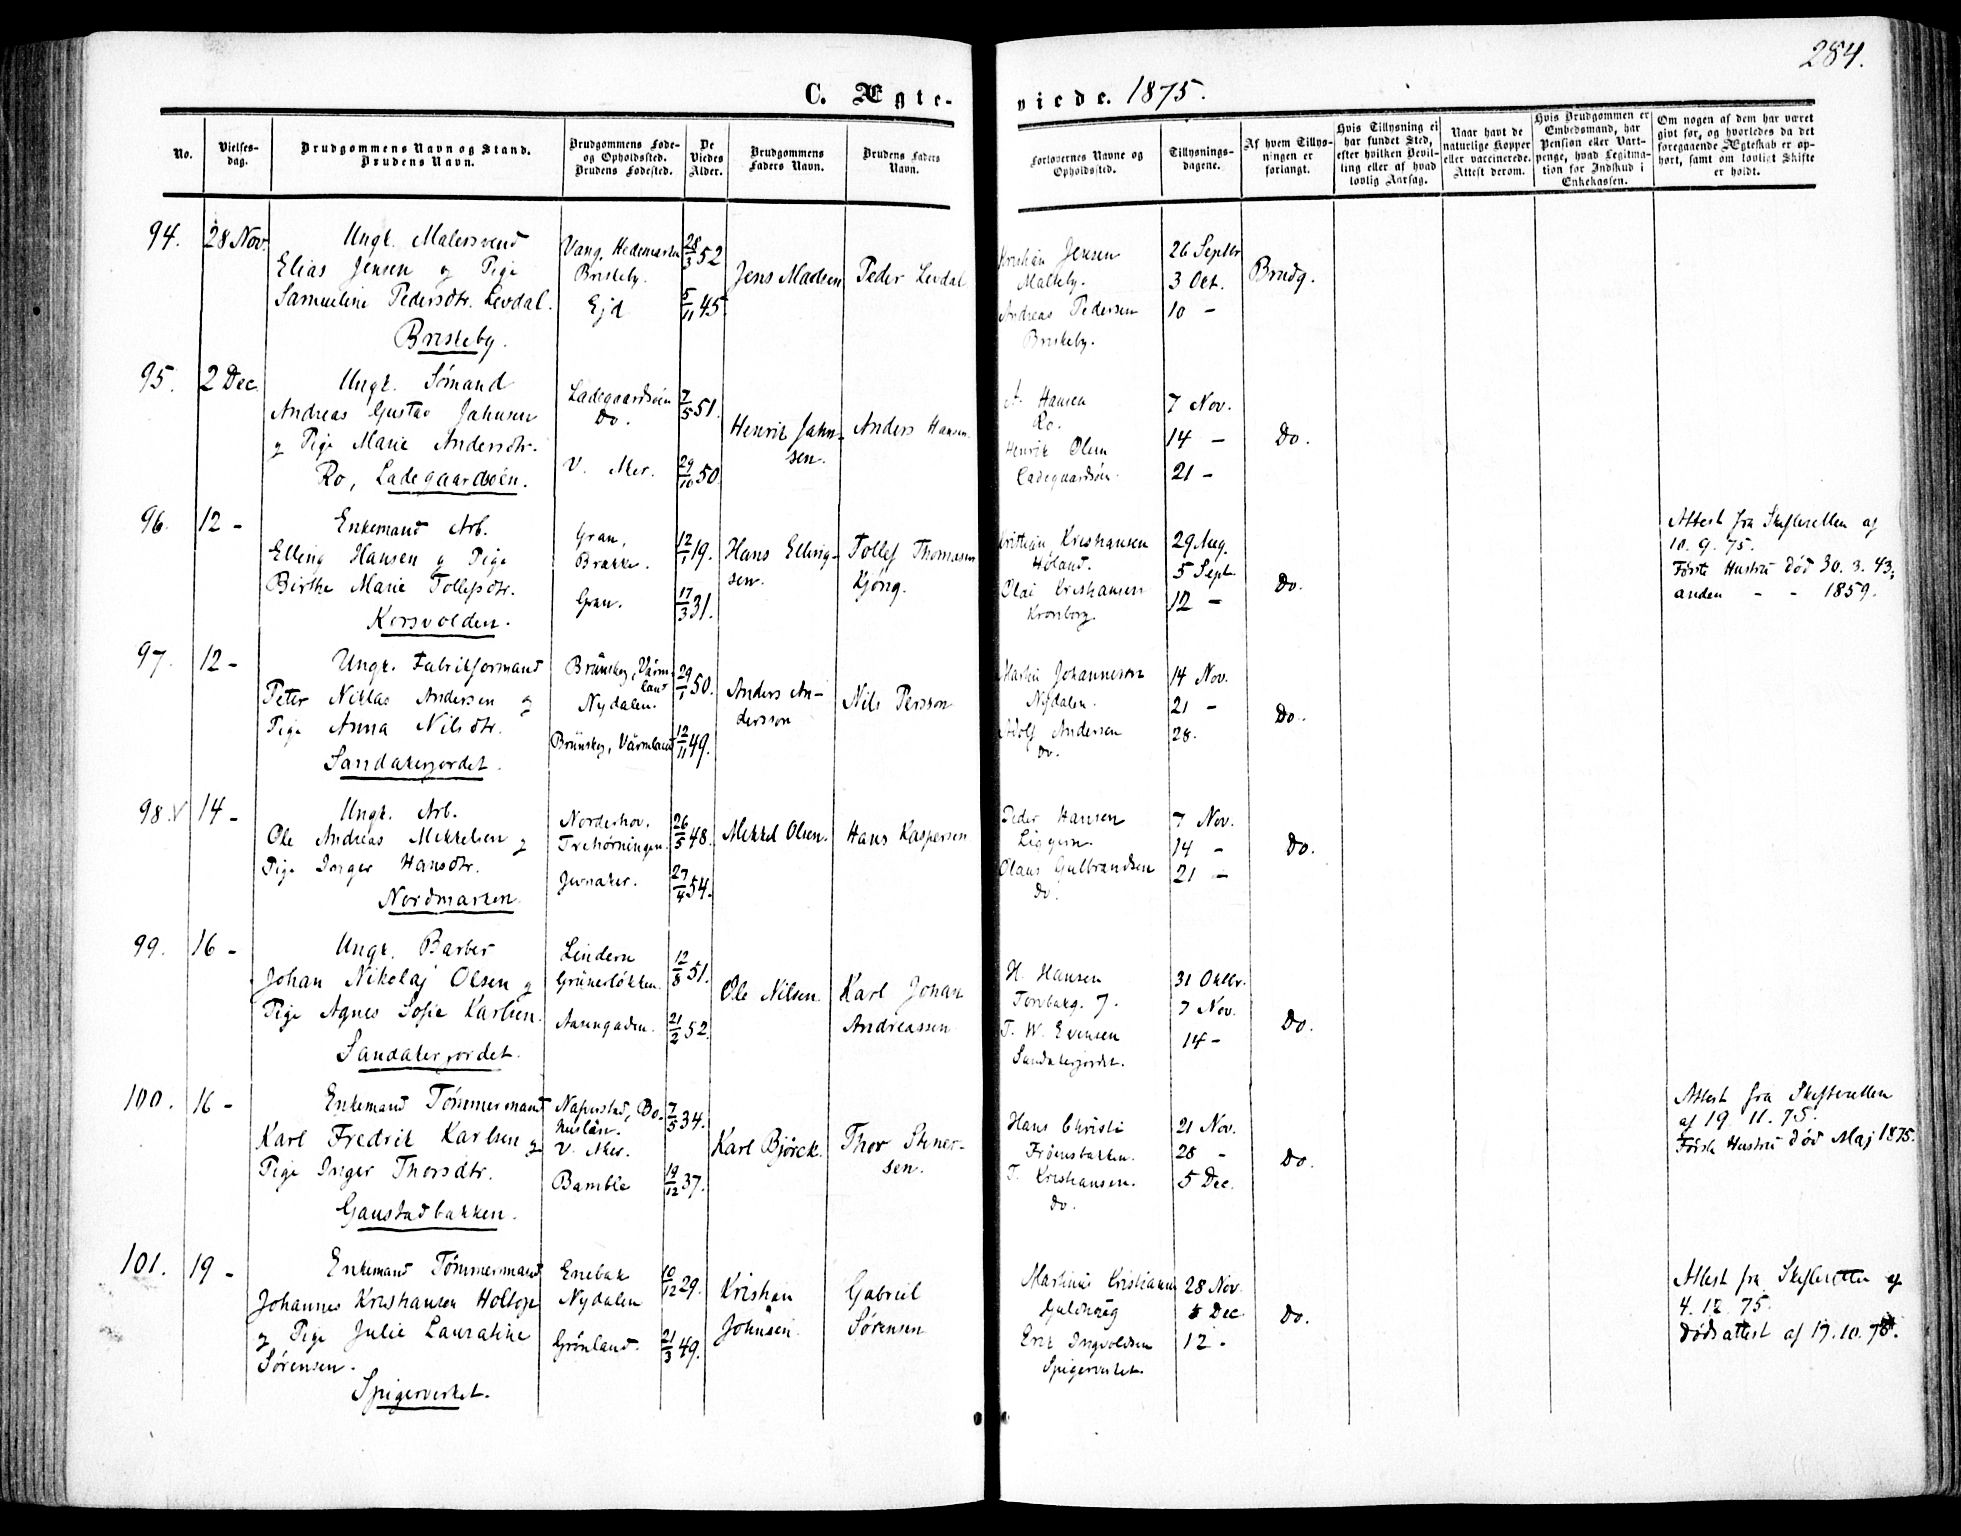 284.
C. Ægte-
viede. 1875.
No.
Vielses-
dag.
Brudgommens Navn og Stand.
Brudens Navn.
Brudgommens Føde-
og Opholdssted.
Brudens Fødested.
De
Viedes
Alder.
Brudgommens
Faders Navn.
Brudens Faders
Navn.
Forlovernes Navne og
Opholdssted.
Tillysnings-
dagene.
Af hvem Tillys-
ningen er
forlangt.
Hvis Tillysning ei
har fundet Sted,
efter hvilken Bevil-
ling eller af hvad
lovlig Aarsag.
Naar havt de
naturlige Kopper
eller vaccinerede.
Attest derom.
Hvis Brudgommen er
Embedsmand, har
Pension eller Vart-
penge, hvad Legitima-
tion for Indskud i
Enkekassen.
Om nogen af dem har været
gift før, og hvorledes da det
foregaaende Ægteskab er op-
hørt, samt om lovligt Skifte
er holdt.
94.
28 Nov.
Ungk. Malersvend
Elias Jensen og Pige
Samueline Pedersdtr. Levdal.
Briskeby.
Vang, Hedemarken
Briskeby.
Ejd
28/3 52
5/11 45
Jens Madsen
Peder Levdal
Kristian Jensen
Malteby.
Andreas Pedersen
Briskeby.
26 Septbr
3 Oct.
10 -
Brudg.
95.
2 Dec.
Ungk. Sømand
Andreas Gustav Jahnsen
og Pige Marie Andersdtr.
Ro, Ladegaardsøen.
Ladegaardsøen
Do.
V. Aker.
7/5 51.
29/10 50
Henrik Jahn-
sen.
Anders Hansen
A. Hansen
Ro.
Henrik Olsen
Ladegaardsøen.
7 Nov.
14 -
21 -
Do.
96.
12 -
Enkemand Arb.
Elling Hansen og Pige
Birthe Marie Tollefsdtr.
Korsvolden.
Gran,
Brække.
Gran.
12/1 19.
17/3 31.
Hans Elling-
sen.
Tollef Thomassen
Kjöng.
Kristian Kristiansen
Høland.
Olai Kristiansen
Kronborg.
29 Aug.
5 Sept.
12 -
Do.
Attest fra Skifteretten af
10. 9. 75.
Første Hustru død 30. 3. 43,
anden - - 1859.
97.
12 -
Ungk. Fabrikformand
Peter Niklas Andersen og
Pige Anna Nilsdtr.
Sandakerjordet.
Brunskog, Värm-
land
Nydalen.
Brunskog, Värmland
29/1 50.
12/11 49.
Anders An-
dersson
Nils Persson
Martin Johannesen
Nydalen.
Adolf Andersen
Do.
14 Nov.
21 -
28.
Do.
98. v
14 -
Ungk. Arb.
Ole Andreas Mikkelsen og
Pige Inger Hansdtr.
Nordmarken.
Norderhov.
Trehørningen.
Jevnaker.
26/5 48.
27/4 54.
Mikkel Olsen.
Hans Kaspersen
Peder Hansen
Liggern.
Olaus Gulbrandsen
Do.
7 Nov.
14 -
21 -
Do.
99.
16 -
Ungk. Barber
Johan Nikolaj Olsen og
Pige Agnes Sofie Karlsen.
Sandakerjordet.
Lindern
Grünerløkken.
Aasengaden.
12/8 51.
21/2 52.
Ole Nilsen.
Karl Johan
Andreassen
H. Hansen
Torvbakg. 7.
T. W. Evensen
Sandakerjordet.
31 Oktbr.
7 Nov.
14 -
Do.
100.
16 -
Enkemand Tømmermand
Karl Fredrik Karlsen og
Pige Inger Thorsdtr.
Gaustadbakken.
Naperstad, Bo-
huslän.
V. Aker.
Bamble
7/5 34.
19/12 37.
Karl Björck.
Thor Stener-
sen.
Hans Christi
Frøensbakken.
T. Kristiansen.
Do.
21 Nov.
28 -
5 Dec.
Do.
Attest fra Skifteretten
af 19. 11. 75.
Første Hustru død Maj 1875.
101.
19 -
Enkemand Tømmermand
Johannes Kristiansen Holtop
og Pige Julie Lauratine
Sørensen.
Spigerverket.
Enebak
Nydalen
Grønland.
10/12 29.
21/3 49.
Kristian
Johnsen.
Gabriel
Sørensen
Martinus Kristiansen
Guldhaug
Erik Ingvoldsen
Spigerverket.
28 Nov.
5 Dec.
12 -
Do.
Attest fra Skifteretten af
4. 12. 75.
Dødsattest af 19. 10. 75.